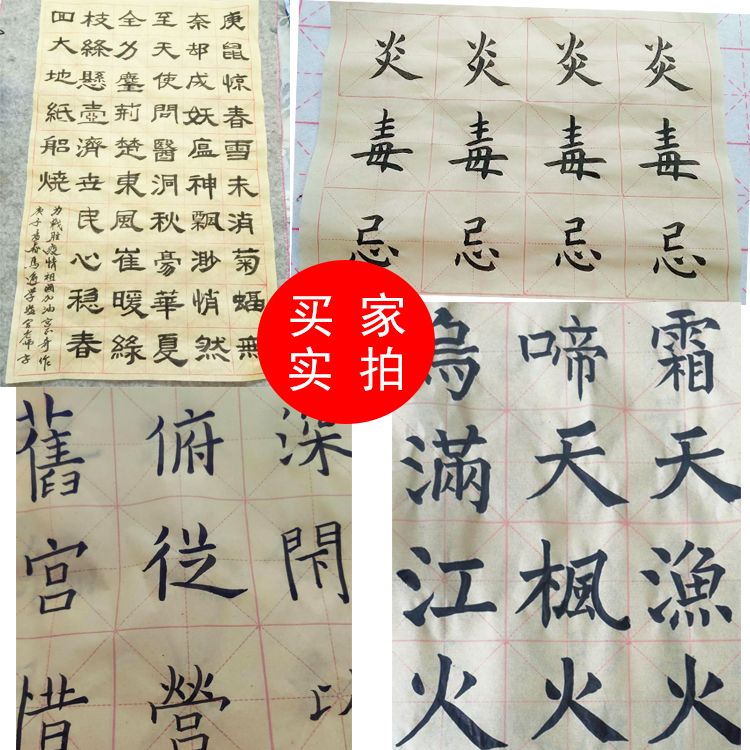 庚鼠惊春雪未消菊蝠無
奈却成妖瘟神飘渺悄然
至天使問醫洞秋豪華夏
全力鏖荊楚東風崔暖綠
枝絲懸壺濟世民心穩春
四大地紙船燒
为战胜疫情祖國加油
炎炎炎炎
毒毒毒毒
忌忌忌忌
买家
实拍
舊俯深
宫従閇
惜營
烏啼霜
滿天天
江楓漁
火火火